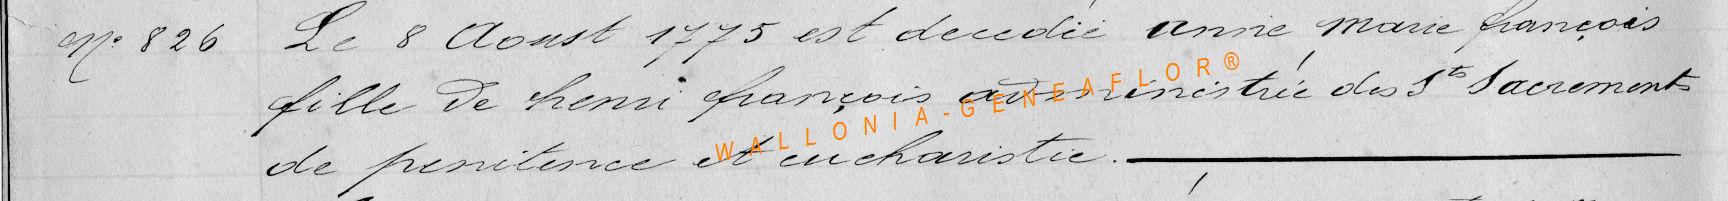 N° 826 Le 8 Aoust 1775 est decedée anne marie françois
fille de henri françois administrée des Sts Sacrements
de penitence et eucharistie.
WALLONIA-GENEAFLOR®